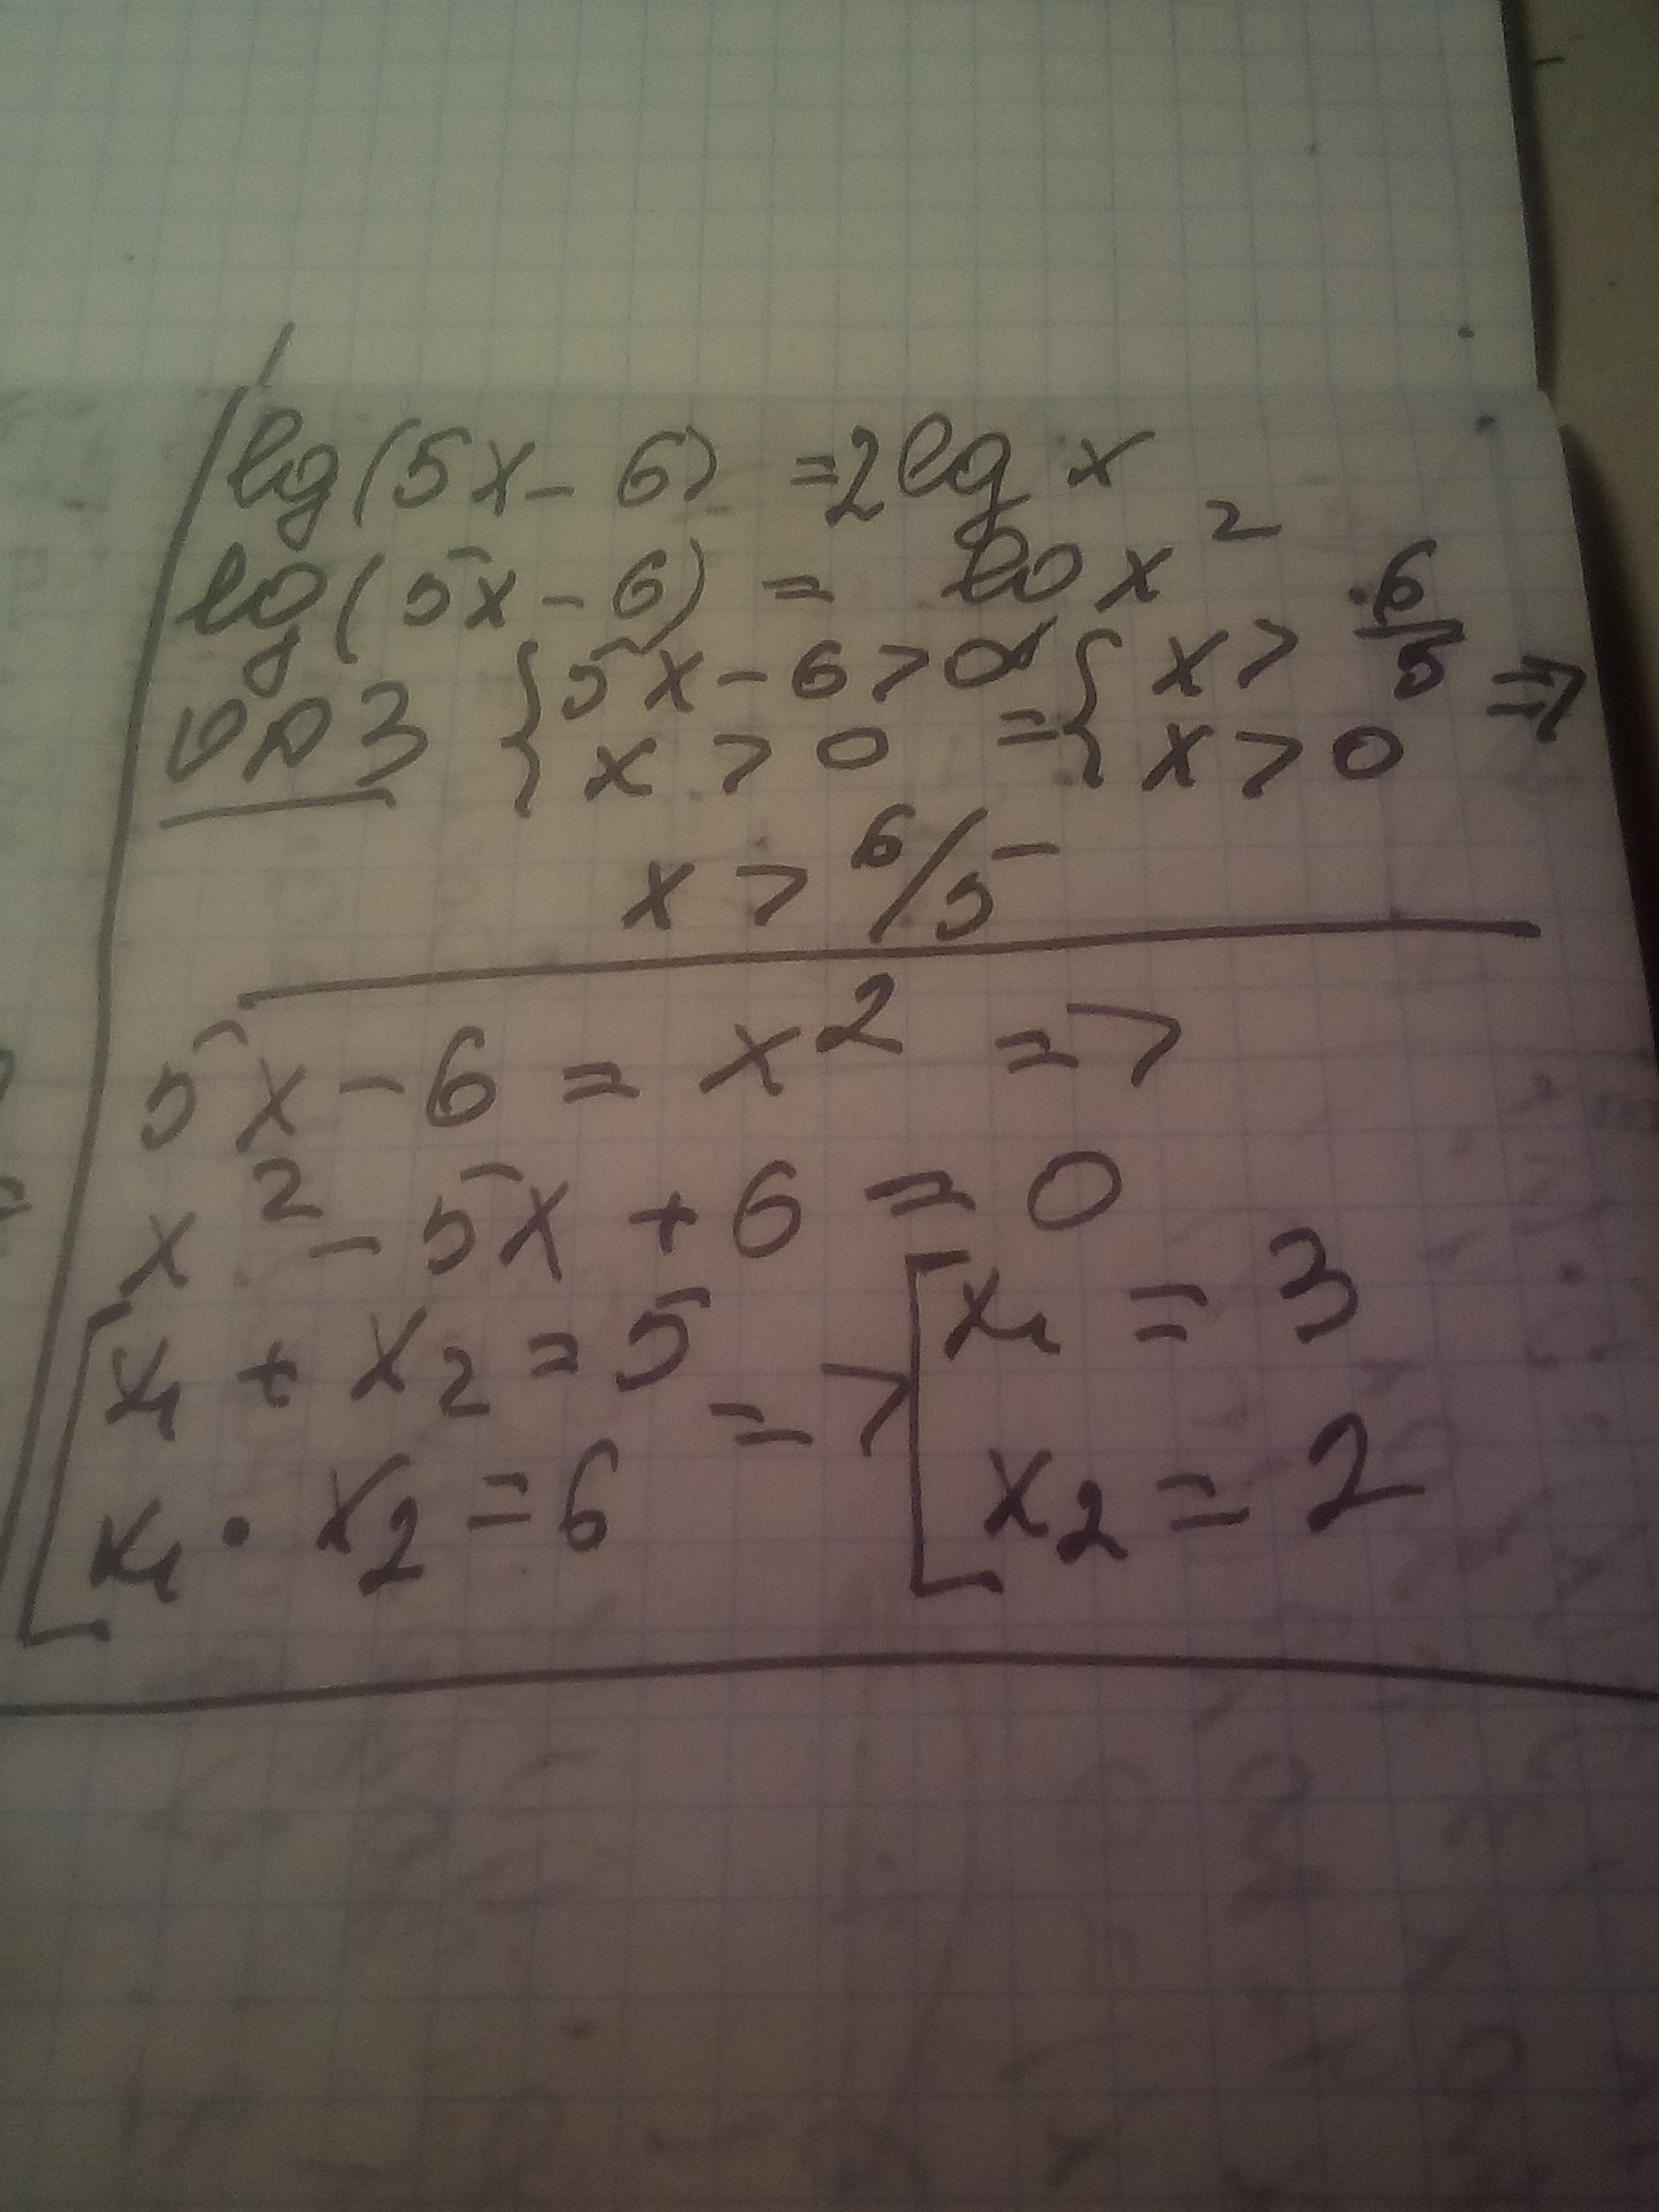 lg(5x-6) = 2lg x
lg(5x-6) = lo x²
ОДЗ { 5x-6>0 x>0 = { x> 6/5 x>0 =>
x > 6/5
5x-6 = x² =>
x² - 5x + 6 = 0
[ x₁ + x₂ = 5 x₁ · x₂ = 6 => [ x₁ = 3 x₂ = 2